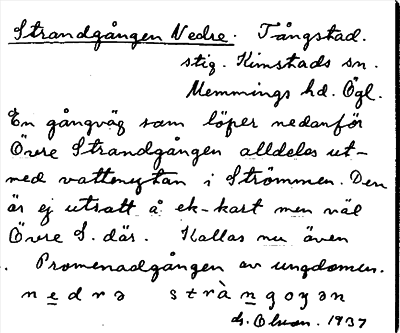 Strandgången Nedre. Tångstad.
stig. Kimstads sn.
Memmings hd. Ögl.
En gångväg som löper nedanför
Övre Strandgången alldeles ut-
med vattenytan i Strömmen. Den
är ej utsatt å ek-kart men väl
Övre S. där. Kallas nu även
Promenadgången av ungdomen.
nedrə stràngoŋən
G. Olson. 1937